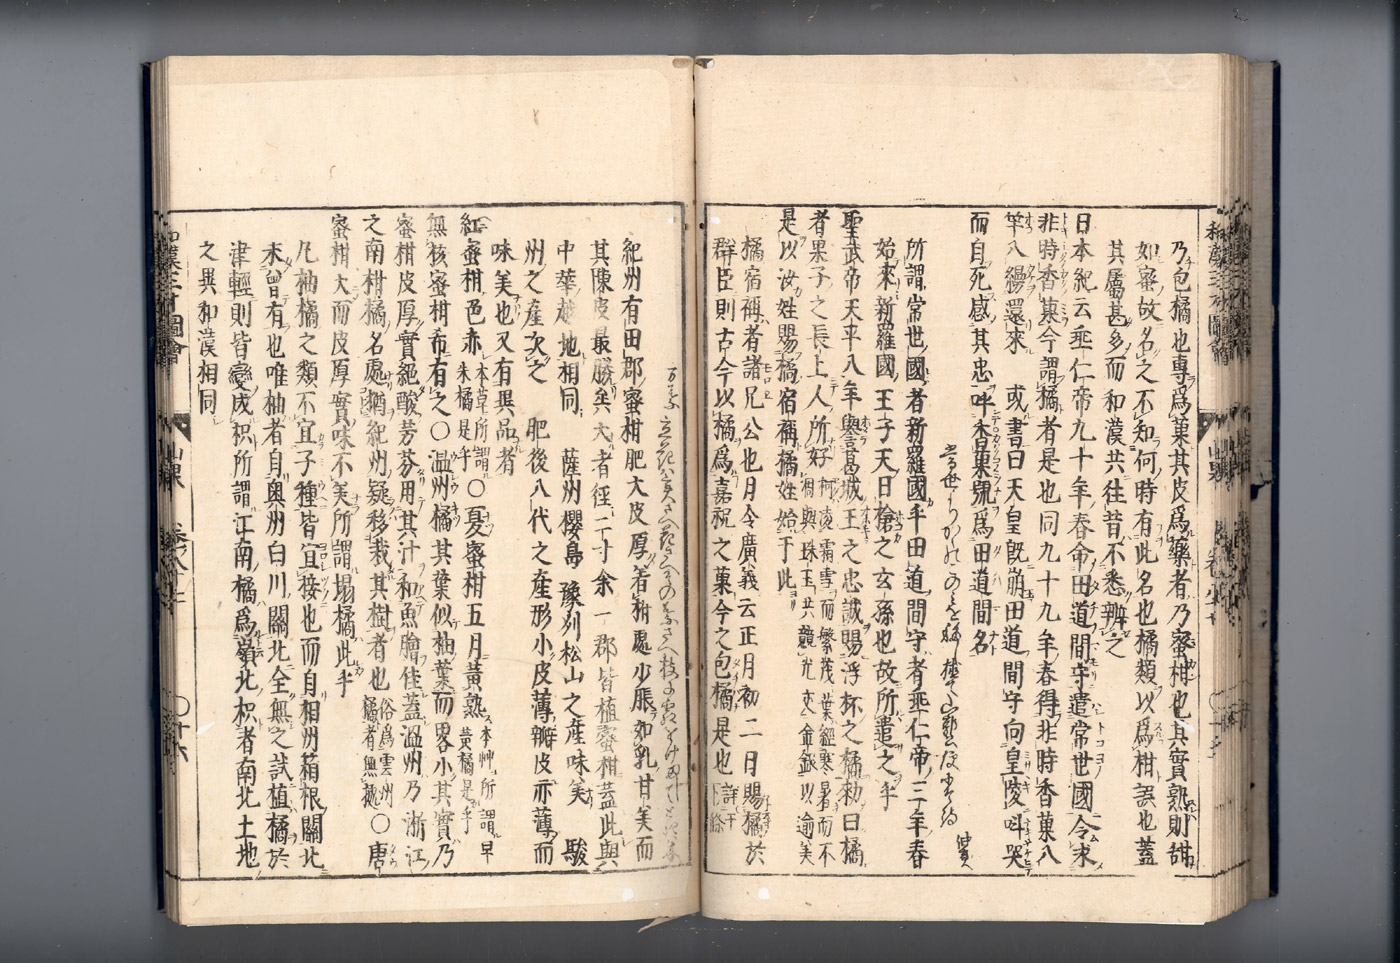 乃包橘也專爲菓其皮爲藥者乃蜜柑也其實熟則甜
如蜜故名之不知何時有此名也橘類以爲柑誤也蓋
其屬甚多而和漢共往昔不悉辨之
日本紀云垂仁帝九十年春命田道間守遣常世國令求
非時香菓今謂橘者是也同九十九年春得非時香菓八
竿八縵還來 或書曰天皇既崩田道間守向皇陵叫哭
而自死感其忠呼香菓號爲田道間名
所謂常世國者新羅國乎田道間守者垂仁帝三年春
始來新羅國王子天日槍之玄孫也故所遣之乎
聖武帝天平八年與葛城王之忠誠賜浮杯之橘勅曰橘
者果子之長上人所好柯凌霜雪而繁茂葉經寒暑而不
彫與珠玉共競光交金銀以逾美
是以汝姓賜橘宿祢橘姓始于此
橘宿祢者諸兄公也月令廣義云正月初二日賜橘於
群臣則古今以橘爲嘉祝之菓今之包橘是也
紀州有田郡蜜柑肥大皮厚着穰處少脹如乳甘美而
其陳皮最勝矣大者徑二寸余一郡皆植蜜柑蓋此與
中華越地相同 薩州櫻島 豫州松山之産味美 駿
州之産次之 肥後八代之産形小皮薄瓣皮亦薄而
味美也又有異品者
紅蜜柑色赤本草所謂朱橘是乎○夏蜜柑五月黄熟本艸所謂早黄橘是乎
無核蜜柑希有之○温州橘其葉似柚葉而畧小其實乃
蜜柑皮厚實絶酸芳芬用其汁和魚膾佳蓋温州乃淅江
之南柑橘名處猶紀州疑移栽其樹者也俗爲雲州橘者無據○唐
蜜柑大而皮厚實味不美所謂塌橘此乎
凡柚橘之類不宜子種皆宜接也而自相州箱根關北
未曾有也唯柚者自奥州白川關北全無之試植橘於
津輕則皆變成枳所謂江南橘爲嶺北枳者南北土地
之異和漢相同
山果